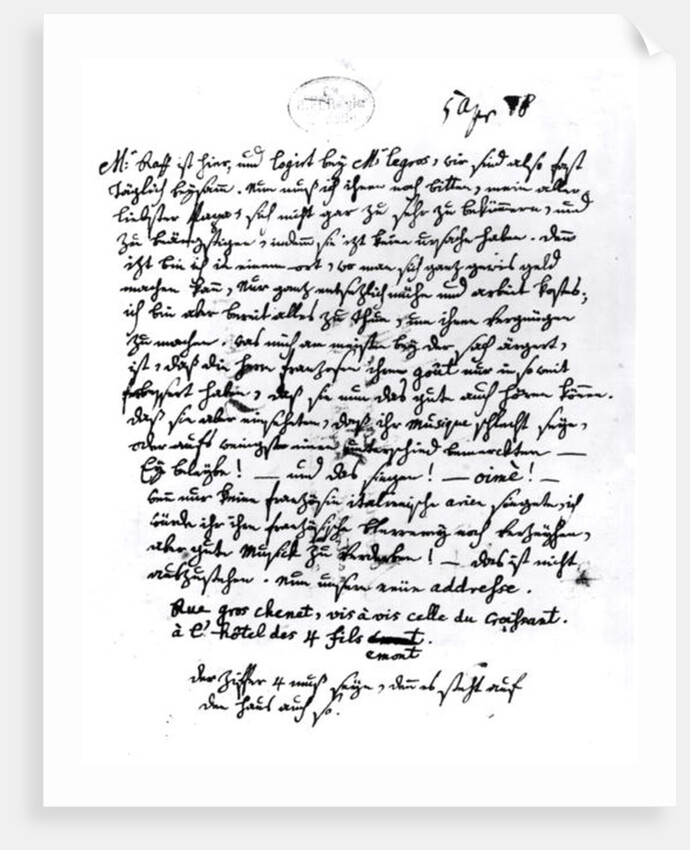 5 Apr 78
Mr: Raff ist hier, und logirt bey Mr legros, wir sind also fast
täglich beysamm. Nun muß ich ihnen noch bitten, mein aller
liebster Papa, sich nicht gar zu sehr zu bekümmern, und
zu beängstigen, indem sie izt keine ursache haben. denn
izt bin ich in einem ort, wo man sich ganz gewis geld
machen kann, Nur ganz entsetzlich mühe und arbeit kostets;
ich bin aber bereit alles zu thun, um ihnen vergnügen
zu machen. was mich am meisten bey der sach ärgert,
ist, daß die herrn franzosen ihren goût nur in so weit
verbessert haben, daß sie nun das gute auch hören können.
daß sie aber einseheten, daß ihr Musique schlecht seye,
oder aufs wenigst einen unterschied bemerckten —
Ey beleybe! — und das singen! — oimè! —
wenn nur keine französin italienische arien singete, ich
würde ihr ihre französische Plererey noch verzeyhen,
aber gute Musick zu verderben! — das ist nicht
auszustehen. Nun unsere neüe addresse.
Rue gros chenet, vis à vis celle du Croissant.
à l'hôtel des 4 fils
emont
der Ziffer 4 muß seyn, denn es steht auf
den haus auch so.